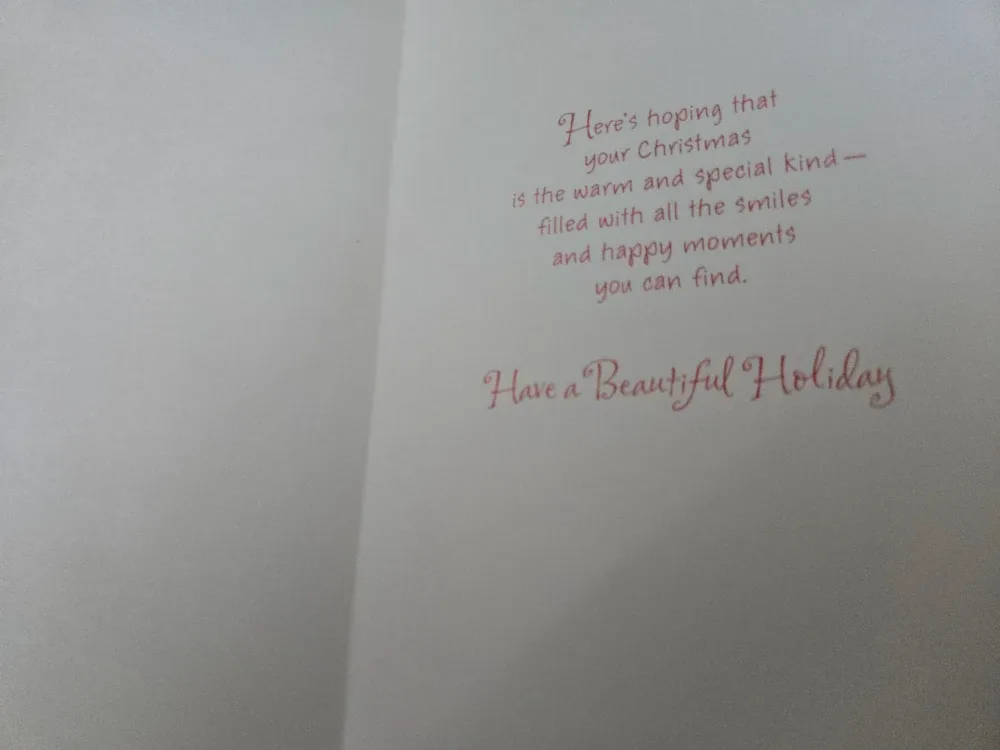 Here's hoping that
your Christmas
is the warm and special kind—
filled with all the smiles
and happy moments
you can find.
Have a Beautiful Holiday